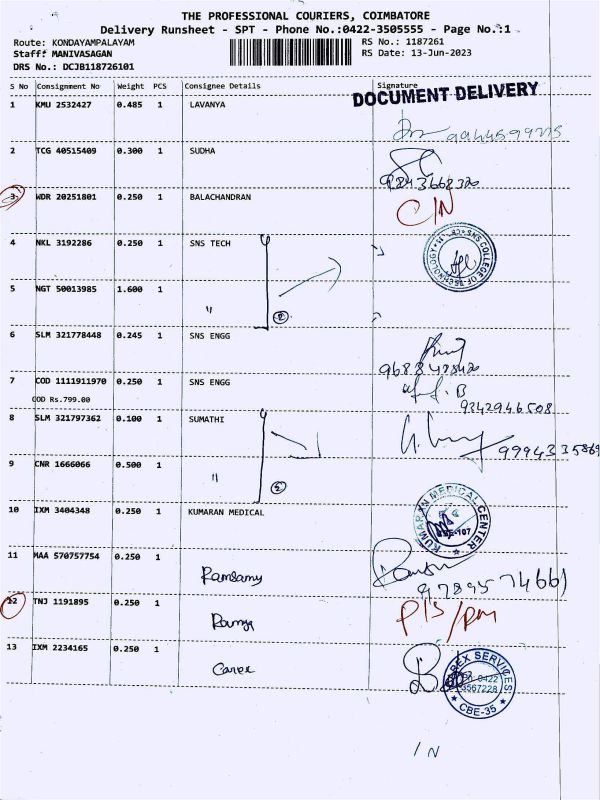 THE PROFESSIONAL COURIERS, COIMBATORE
Delivery Runsheet - SPT - Phone No.:0422-3505555 - Page No.:1
Route: KONDAYAMPALAYAM
RS No.: 1187261
Staff: MANIVASAGAN
RS Date: 13-Jun-2023
DRS No.: DCJB118726101
S No Consignment No Weight PCS Consignee Details Signature
DOCUMENT DELIVERY
1 KMU 2532427 0.485 1 LAVANYA
2 TCG 40515409 0.300 1 SUDHA
9843668320
3 WDR 20251801 0.250 1 BALACHANDRAN C/N
4 NKL 3192286 0.250 1 SNS TECH
SNS COLLEGE OF TECHNOLOGY
5 NGT 50013985 1.600 1 "
6 SLM 321778448 0.245 1 SNS ENGG
7 COD 1111911970 0.250 1 SNS ENGG
COD Rs.799.00
9342946508
8 SLM 321797362 0.100 1 SUMATHI
9994335869
9 CNR 1666066 0.500 1 "
10 IXM 3404348 0.250 1 KUMARAN MEDICAL
KUMARAN MEDICAL CENTER
11 MAA 570757754 0.250 1 Ramsamy
9789574661
12 TNJ 1191895 0.250 1 Ramya
13 IXM 2234165 0.250 1 Carex
CAREX SERVICES
0422
3567228
CBE-35
/ N